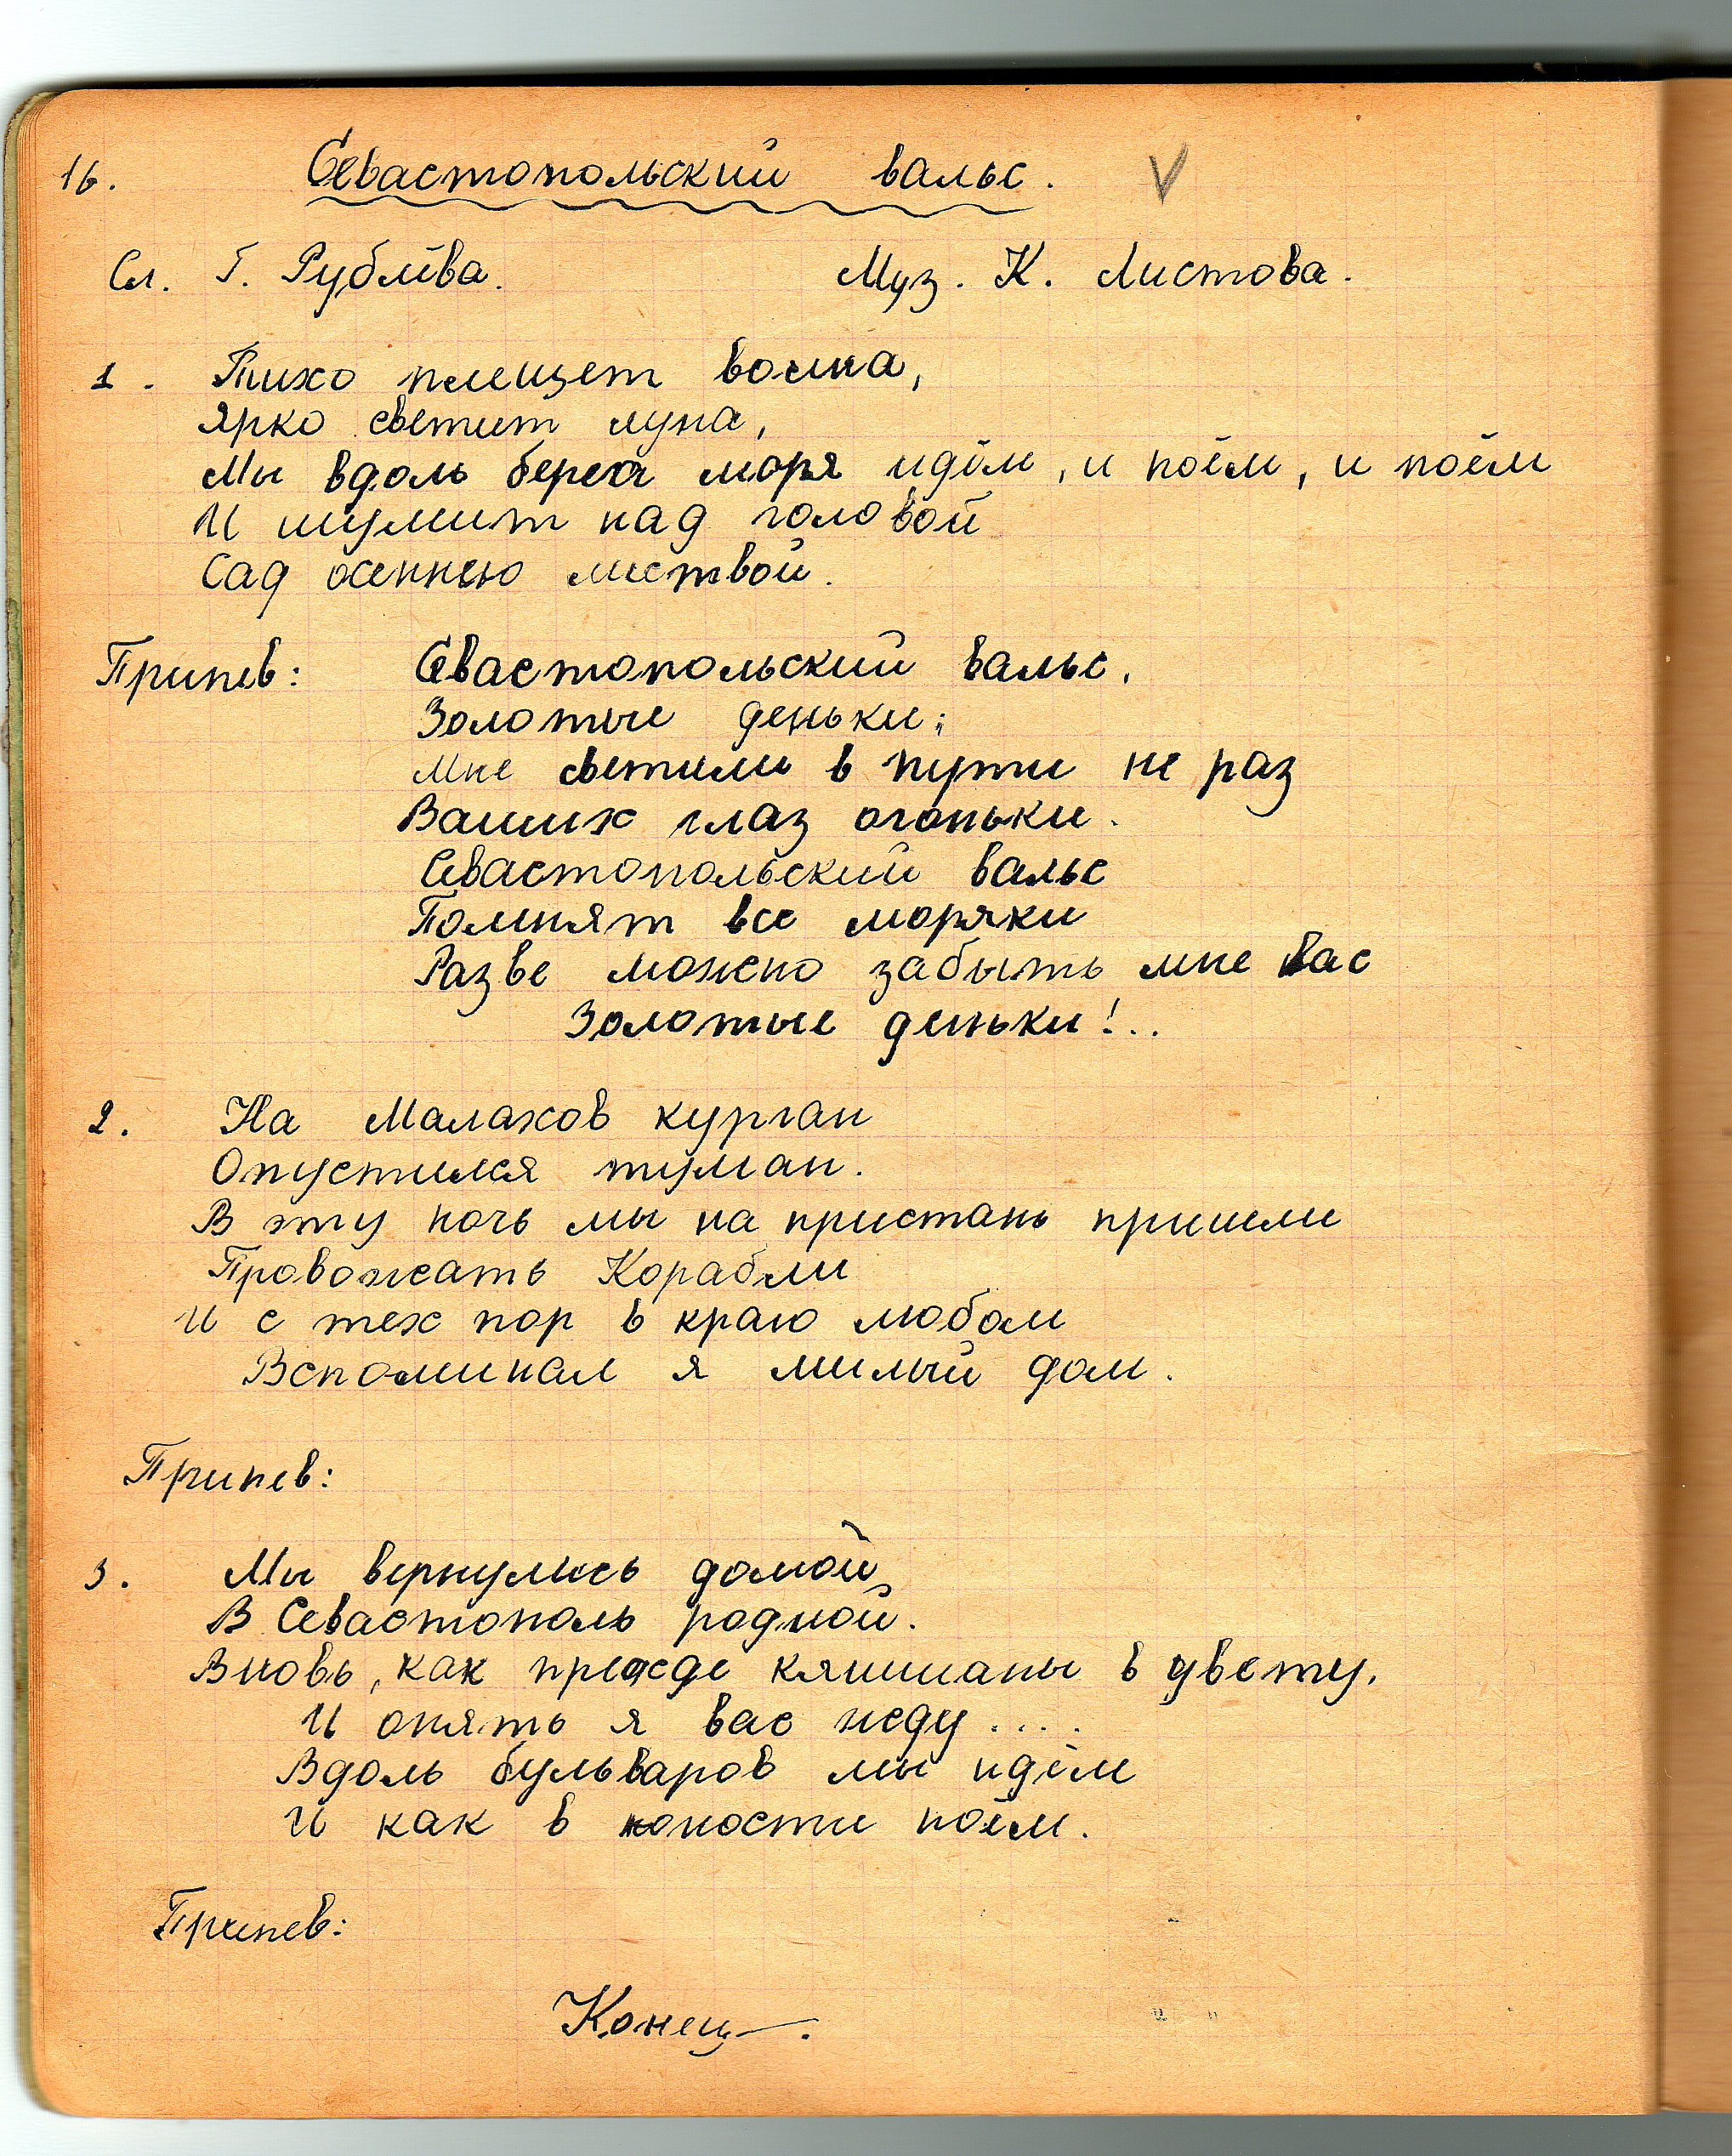 16. Севастопольский вальс. V
Сл. Г. Рублёва. Муз. К. Листова.
1. Тихо плещет волна,
Ярко светит луна,
Мы вдоль берега моря идём, и поём, и поём
И шумит над головой
Сад осеннею листвой.
Припев: Севастопольский вальс.
Золотые деньки;
Мне светили в пути не раз
Ваших глаз огоньки.
Севастопольский вальс
Помнят все моряки
Разве можно забыть мне вас
Золотые деньки!..
2. На Малахов курган
Опустился туман.
В эту ночь мы на пристань пришли
Провожать Корабли
И с тех пор в краю любом
Вспоминал я милый дом.
Припев:
3. Мы вернулись домой
В Севастополь родной.
Вновь, как прежде кяшианы в цвету.
И опять я вас жду....
Вдоль бульваров мы идём
И как в юности поём.
Припев:
Конец.